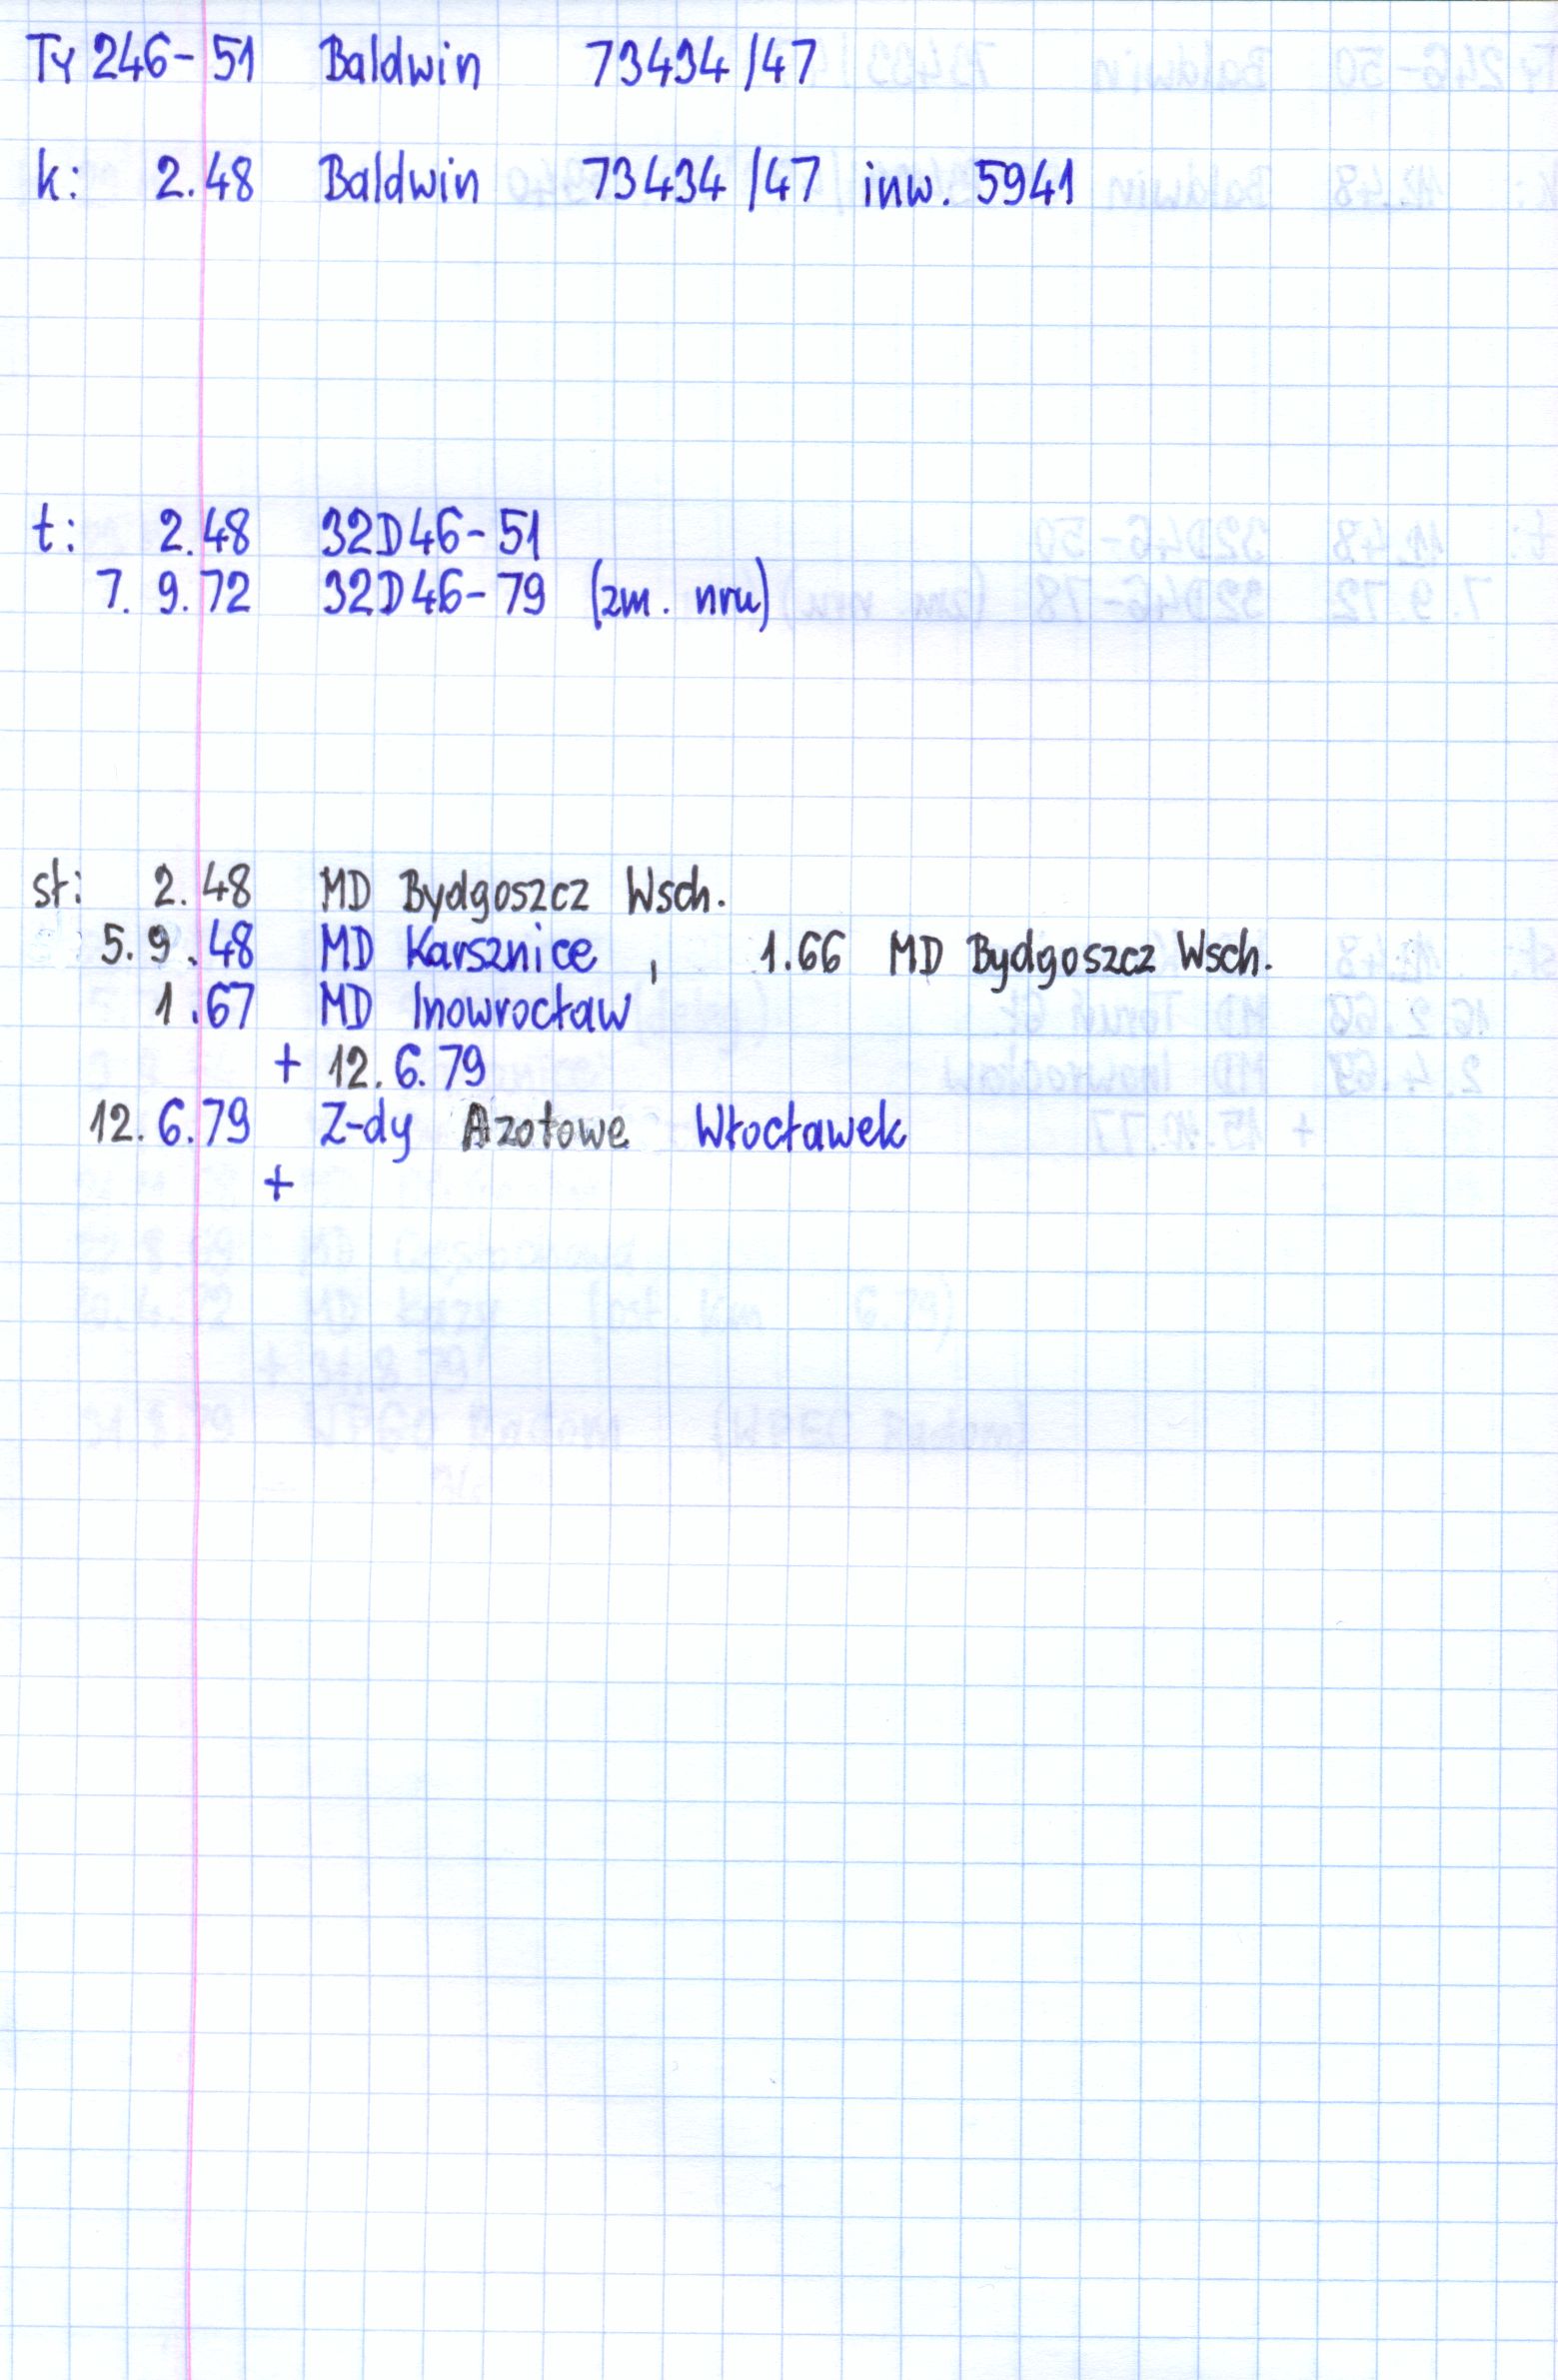 Ty 246-51 Baldwin 73434/47
k: 2.48 Baldwin 73434/47 inw. 5941
t: 2.48 32D46-51
7. 9.72 32D46-79 (zm. nru)
st: 2.48 MD Bydgoszcz Wsch.
5.9.48 MD Karsznice, 1.66 MD Bydgoszcz Wsch.
1.67 MD Inowrocław
+ 12.6.79
12.6.79 Z-dy Azotowe Włocławek
+